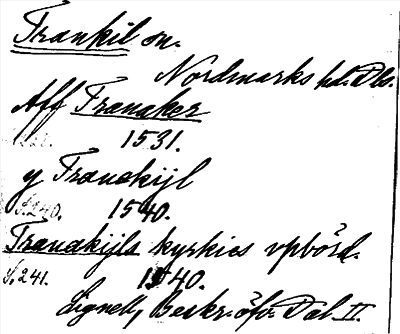 Trankil sn.
Nordmarks hd. Db.
Aff Tranaker
1531.
y Tranakijl
S. 240. 1540.
Tranakijls kyrkies vpbörd.
S. 241. 1540.
Lignell, Beskr. öfv. Dal II.